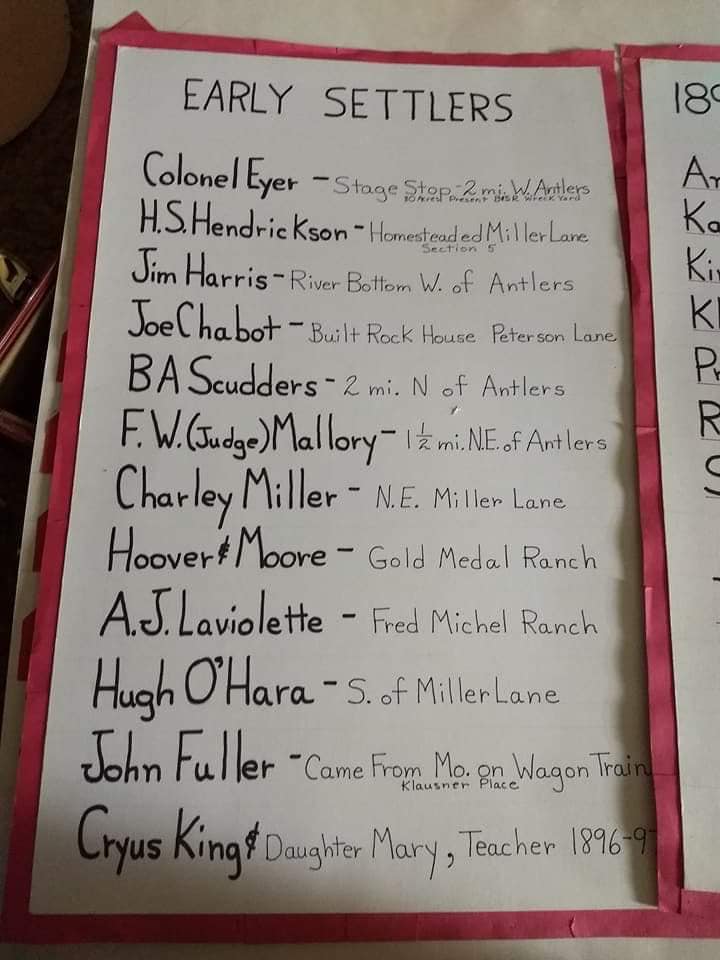 EARLY SETTLERS
Colonel Eyer - Stage Stop - 2 mi. W. Antlers
80 Acres Present B&SR Wreck Yard
H.S. Hendrickson - Homesteaded Miller Lane
Section 5
Jim Harris - River Bottom W. of Antlers
Joe Chabot - Built Rock House Peterson Lane
BA Scudders - 2 mi. N of Antlers
F.W. (Judge) Mallory - 1 1/2 mi. N.E. of Antlers
Charley Miller - N.E. Miller Lane
Hoover & Moore - Gold Medal Ranch
A.J. Laviolette - Fred Michel Ranch
Hugh O'Hara - S. of Miller Lane
John Fuller - Came From Mo. on Wagon Train
Klausner Place
Cryus King & Daughter Mary, Teacher 1896-9
189
Ar
Ka
Kin
Kl
Pr
R
S